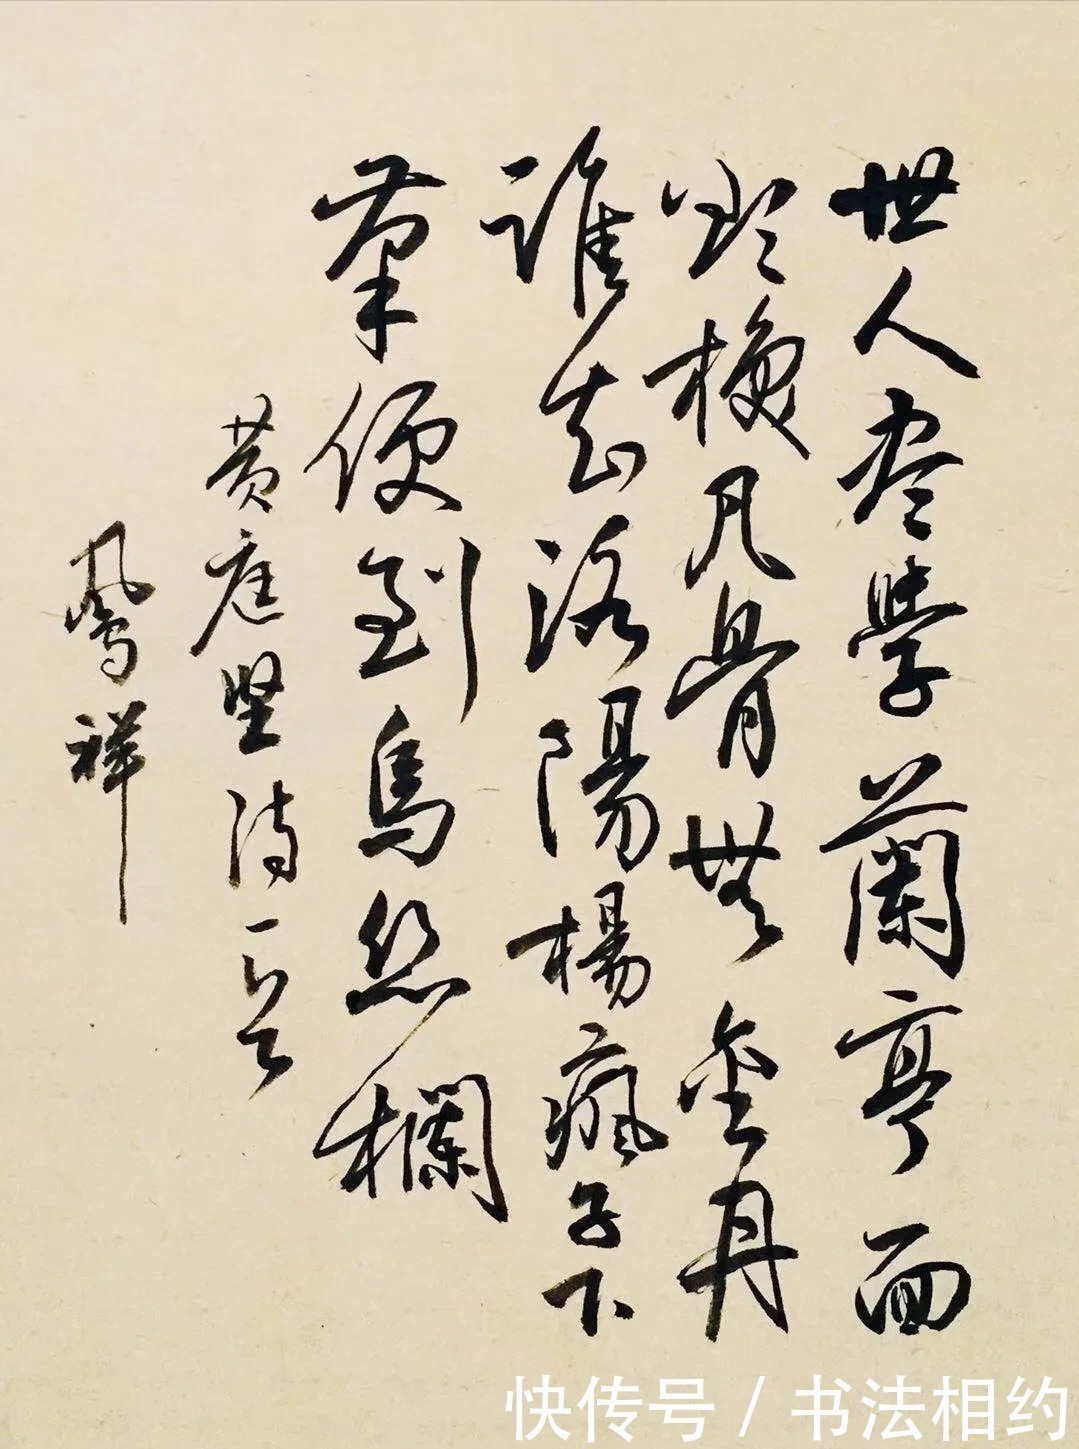 世人尽學蘭亭面
欲換凡骨無金丹
誰知洛陽楊瘋子下
筆便到烏丝欄
黄庭坚诗一首
鳳祥
快传号 / 书法相约